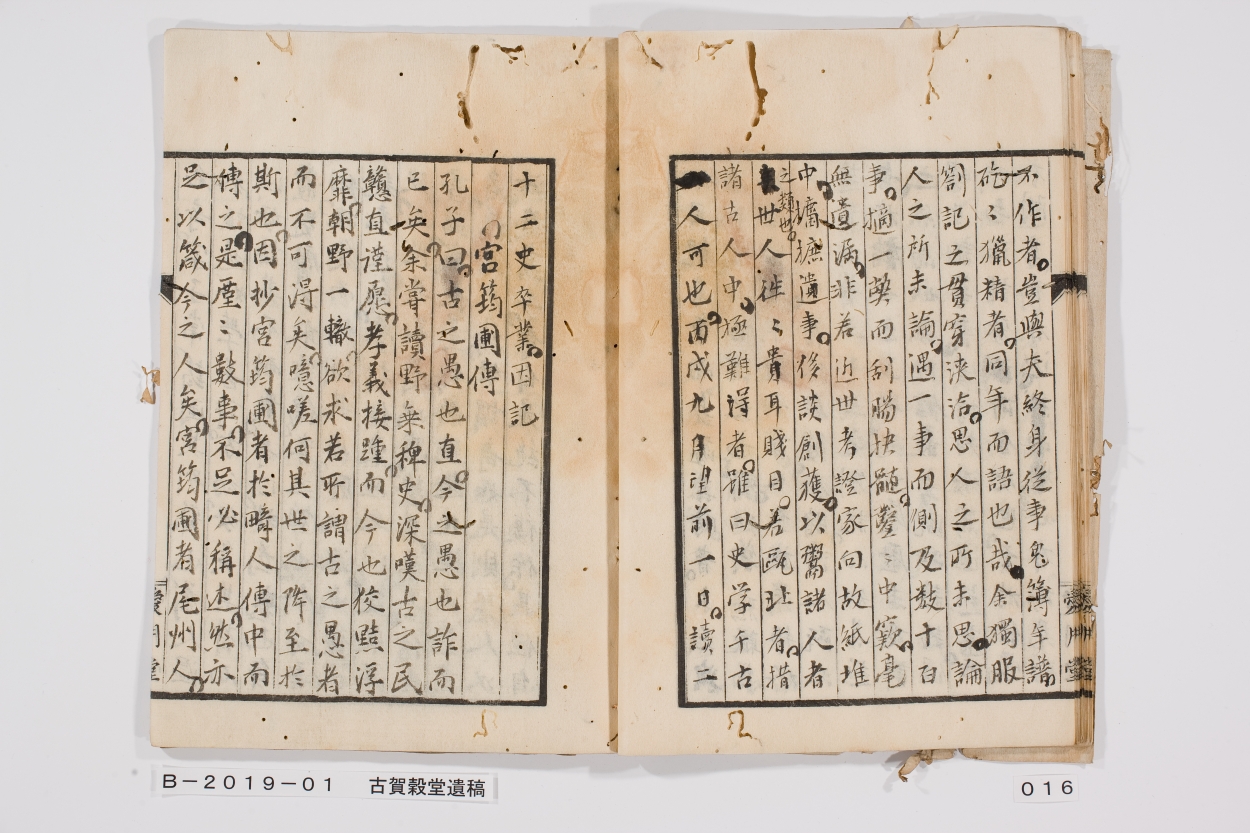 不作者豈與夫終身從事鬼簿年譜
矻〻獵精者同年而語也哉余獨服
劄記之貫穿浹洽思人之所未思論
人之所未論遇一事而側及数十百
事摘一㢤而刮腸抉髓鑿〻中窾毫
無遺漏非若近世考證家向故紙堆
中攟摭遺事後談創獲以鬻諸人者
之類也
世人徃〻貴耳賤目若甌北者措
諸古人中極難得者雖曰史学千古
一人可也丙戌九月望前一日讀二
十二史卒業因記
宮筠圃傳
孔子曰古之愚也直今之愚也詐而
已矣余嘗讀野乗稗史深嘆古之民
戇直謹愿孝義接踵而今也狡黠浮
靡朝野一轍欲求若所謂古之愚者
而不可得矣噫嗟何其世之降至於
斯也因抄宮筠圃者於畸人傳中而
傳之是㕓〻數事不足必稱述然亦
足以箴今之人矣宮筠圃者尾州人
B－2019－01　古賀穀堂遺稿
016